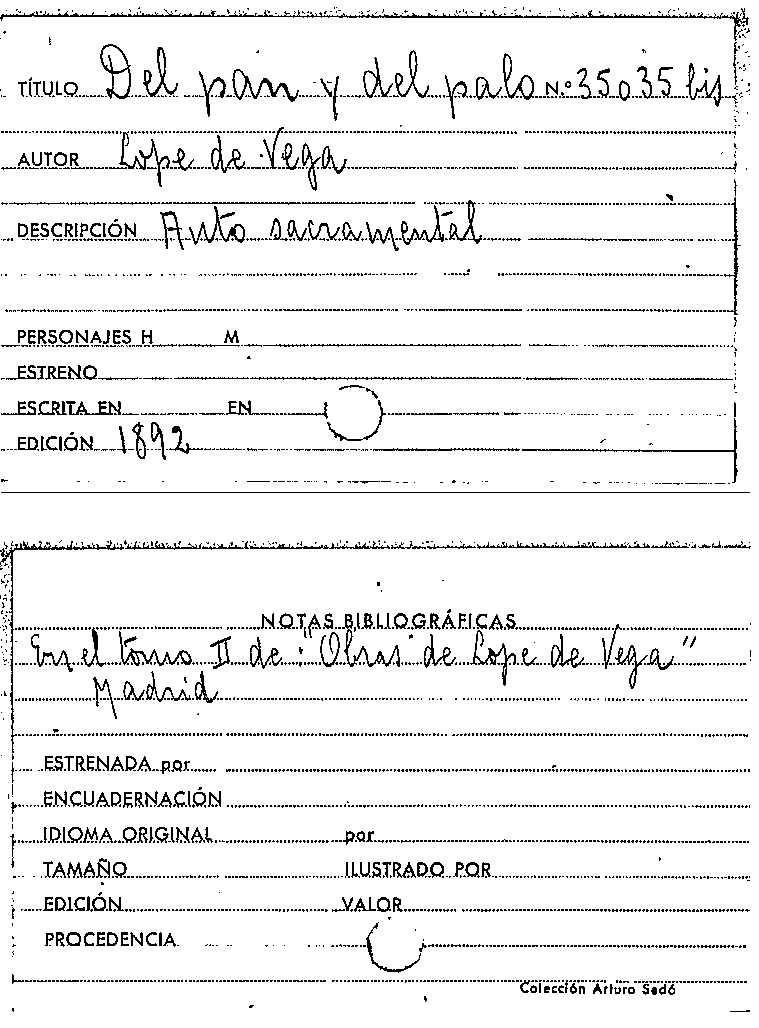 TÍTULO Del pan y del palo N.º 35035 bis
AUTOR Lope de Vega
DESCRIPCIÓN Auto sacramental
PERSONAJES H M
ESTRENO
ESCRITA EN EN
EDICIÓN 1892
NOTAS BIBLIOGRÁFICAS
En el tomo II de: "Obras de Lope de Vega"
Madrid
ESTRENADA por
ENCUADERNACIÓN
IDIOMA ORIGINAL por
TAMAÑO ILUSTRADO POR
EDICIÓN VALOR
PROCEDENCIA
Colección Arturo Sedó